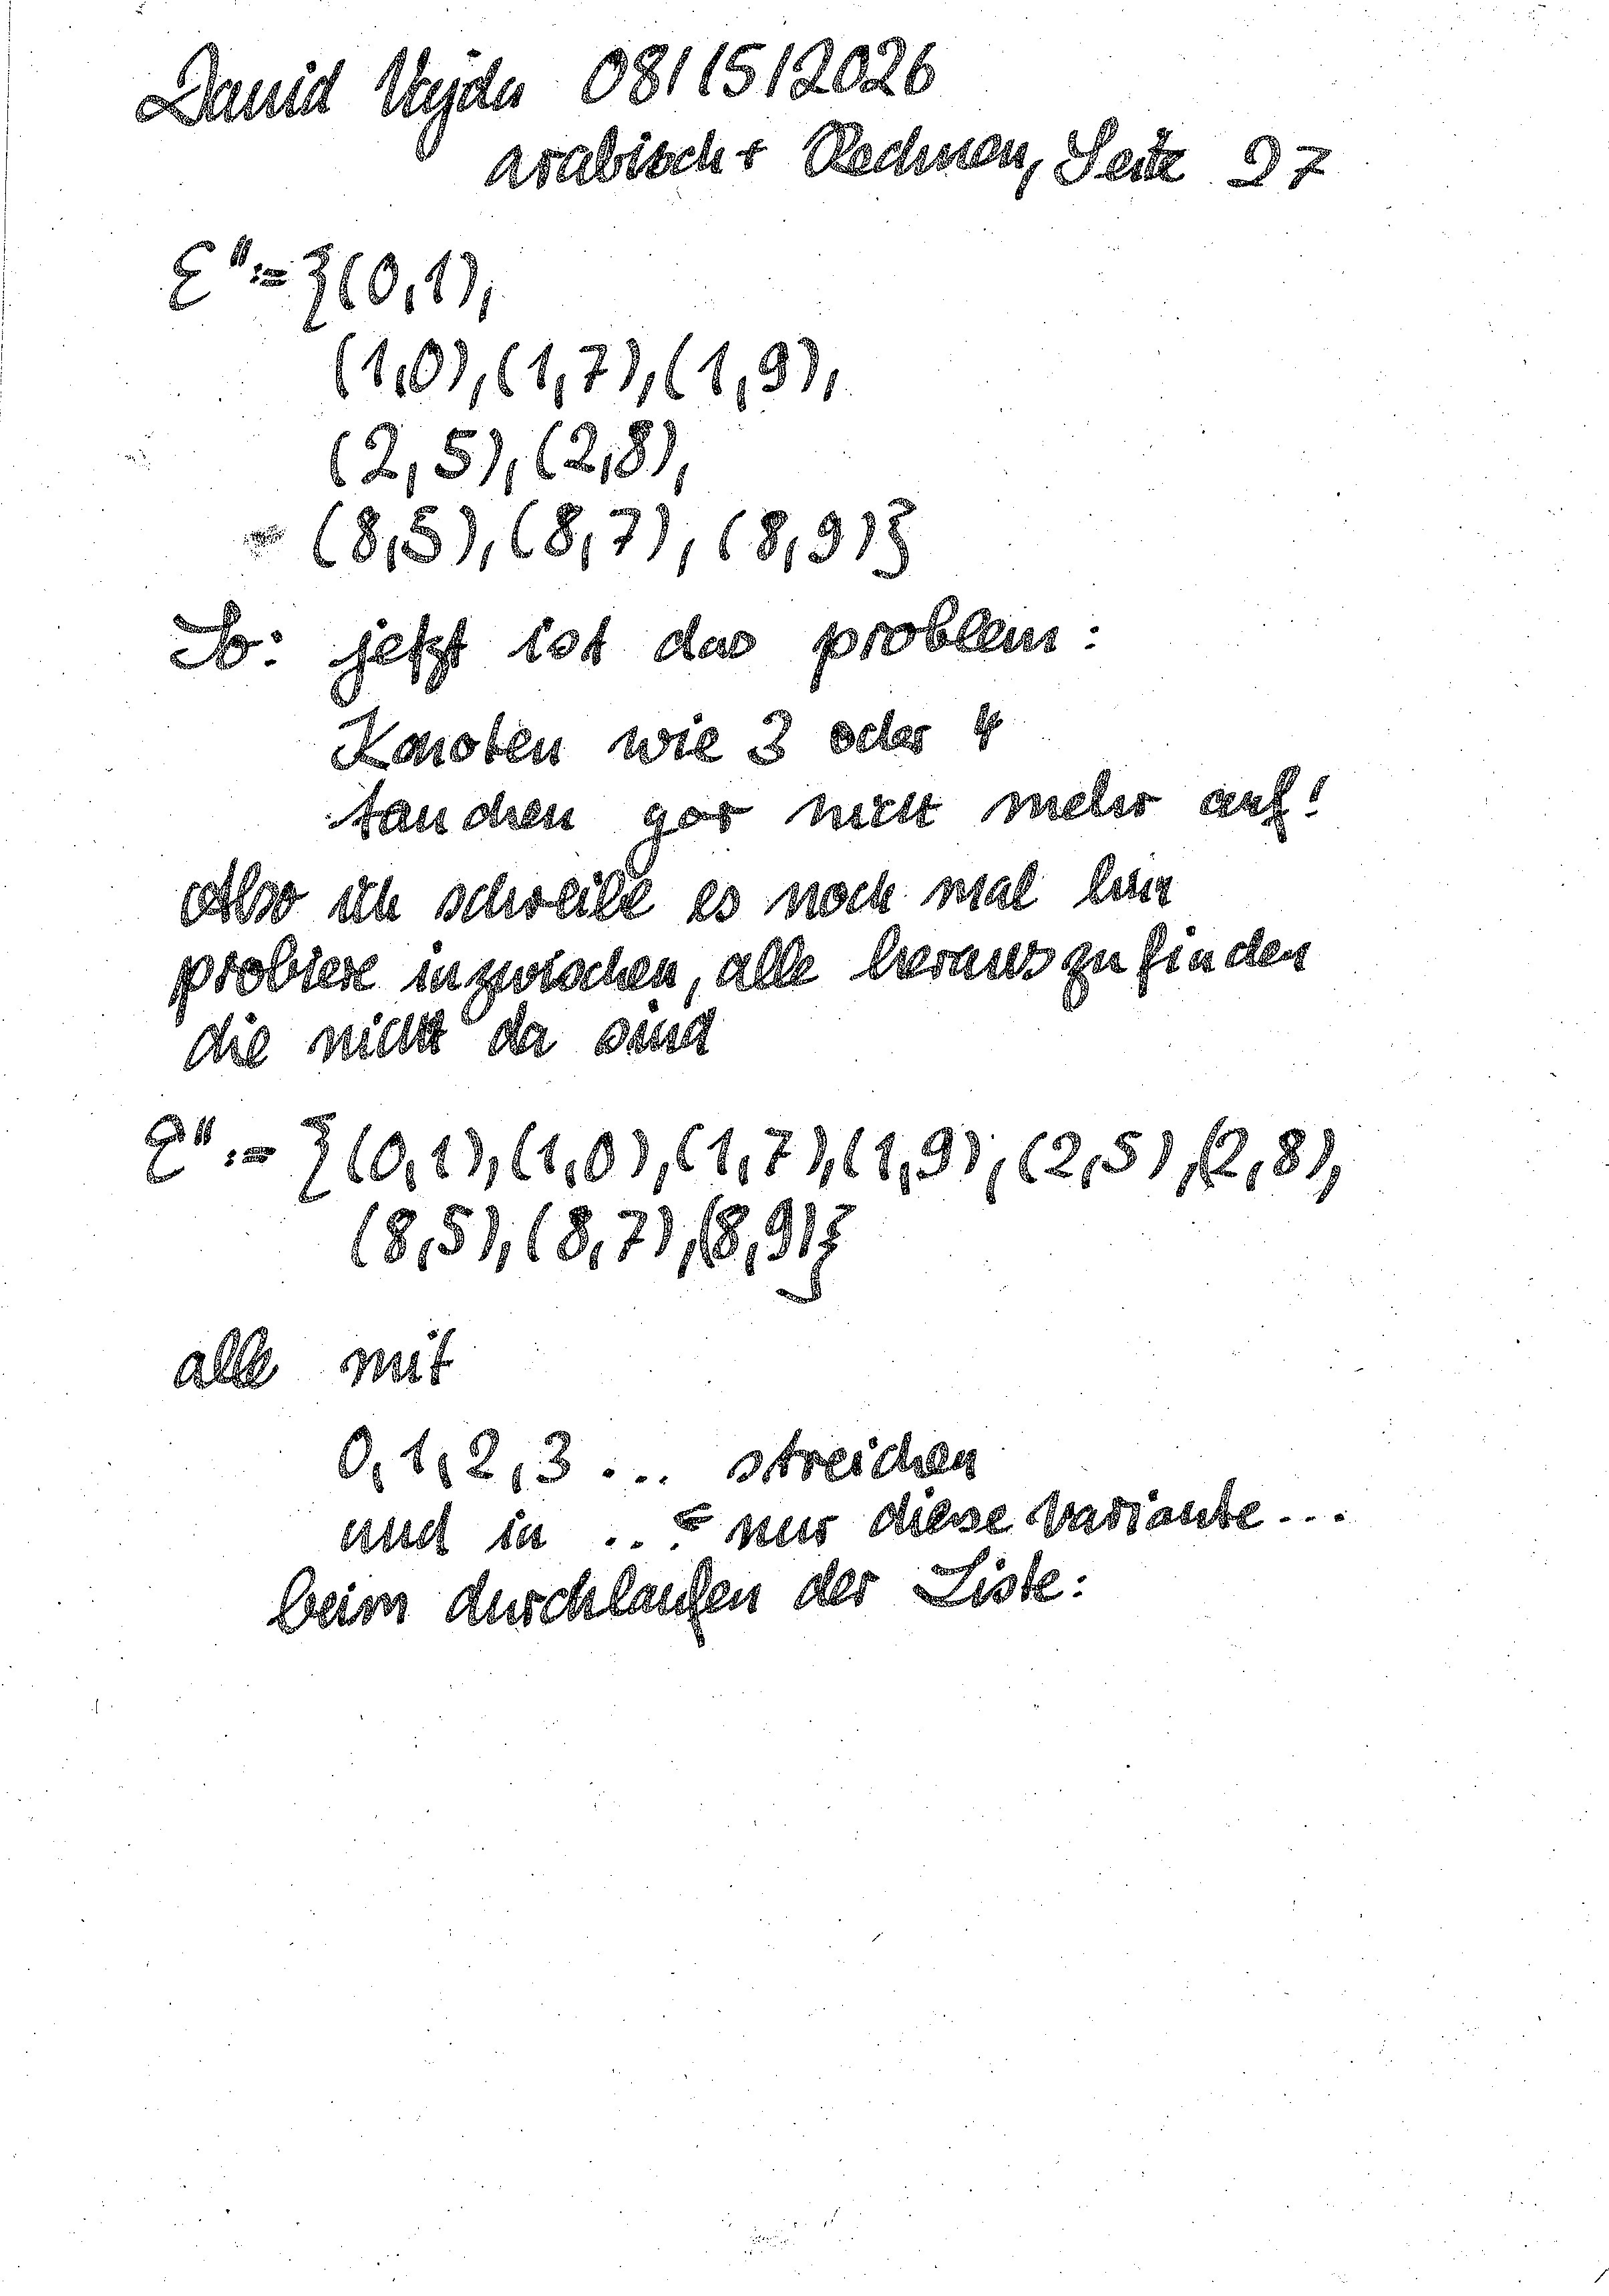 David Vajda 08/15/2026
arabisch + Rechnen, Seite 27
E'' := {(0,1),
(1,0), (1,7), (1,9),
(2,5), (2,8),
(8,5), (8,7), (8,9)}
So: jetzt ist das problem:
Knoten wie 3 oder 4
tauchen gar nicht mehr auf!
Also ich schreibe es noch mal hin
probiere inzwischen, alle herauszufinden
die nicht da sind
E'' := {(0,1), (1,0), (1,7), (1,9), (2,5), (2,8),
(8,5), (8,7), (8,9)}
alle mit
0, 1, 2, 3 ... streichen
und in ... nur diese Variante ...
beim durchlaufen der Liste: